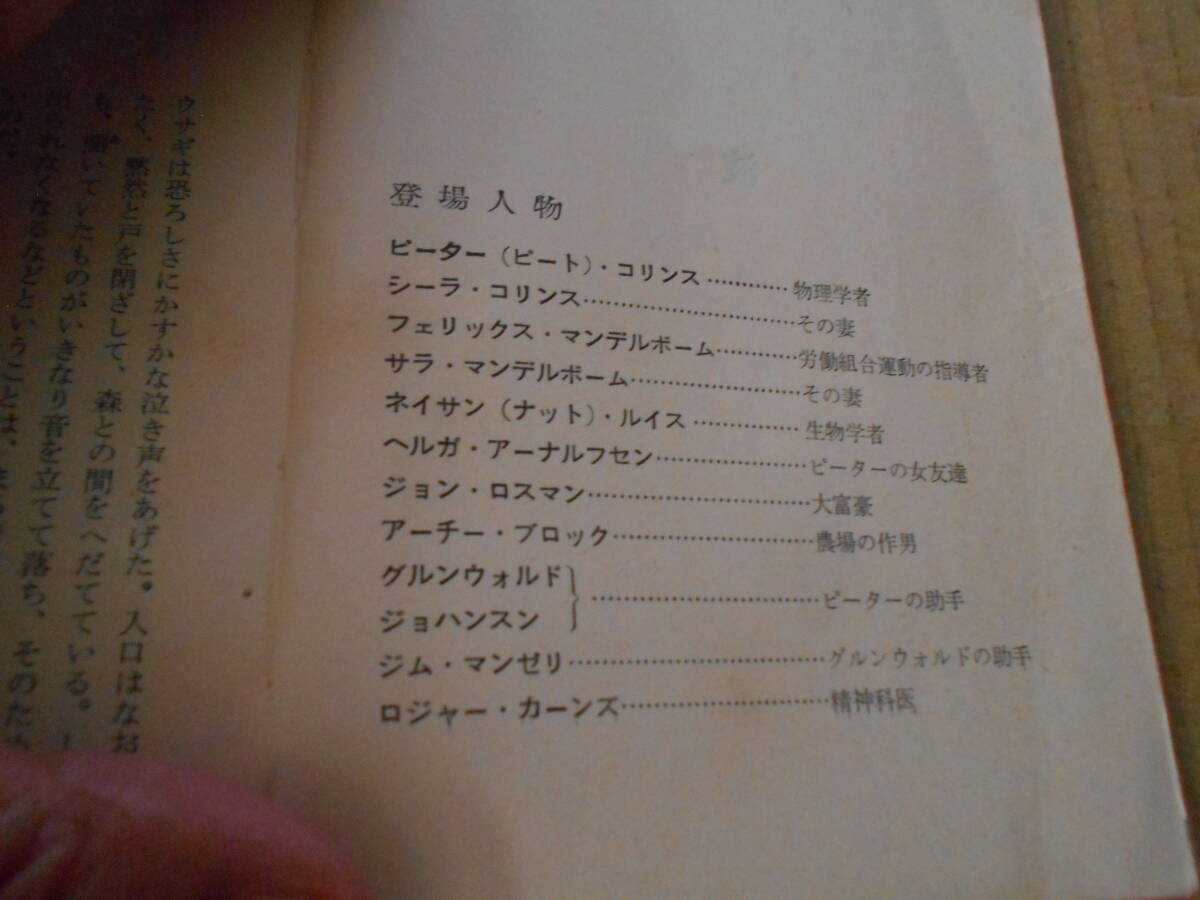 登場人物
ピーター（ピート）・コリンス…………物理学者
シーラ・コリンス…………………………その妻
フェリックス・マンデルボーム…………労働組合運動の指導者
サラ・マンデルボーム……………………その妻
ネイサン（ナット）・ルイス……………生物学者
ヘルガ・アーナルフセン…………………ピーターの女友達
ジョン・ロスマン…………………………大富豪
アーチー・ブロック………………………農場の作男
グルンウォルド
ジョハンスン｝…………………………ピーターの助手
ジム・マンゼリ……………………………グルンウォルドの助手
ロジャー・カーンズ………………………精神科医
ウサギは恐ろしさにかすかな泣き声をあげた。入口はなお
たく、黙然と戸を閉ざして、森との間をへだてている。し
も、開いていたものがいきなり音を立てて落ち、そのため
られなくなるなどということは、
のだ。